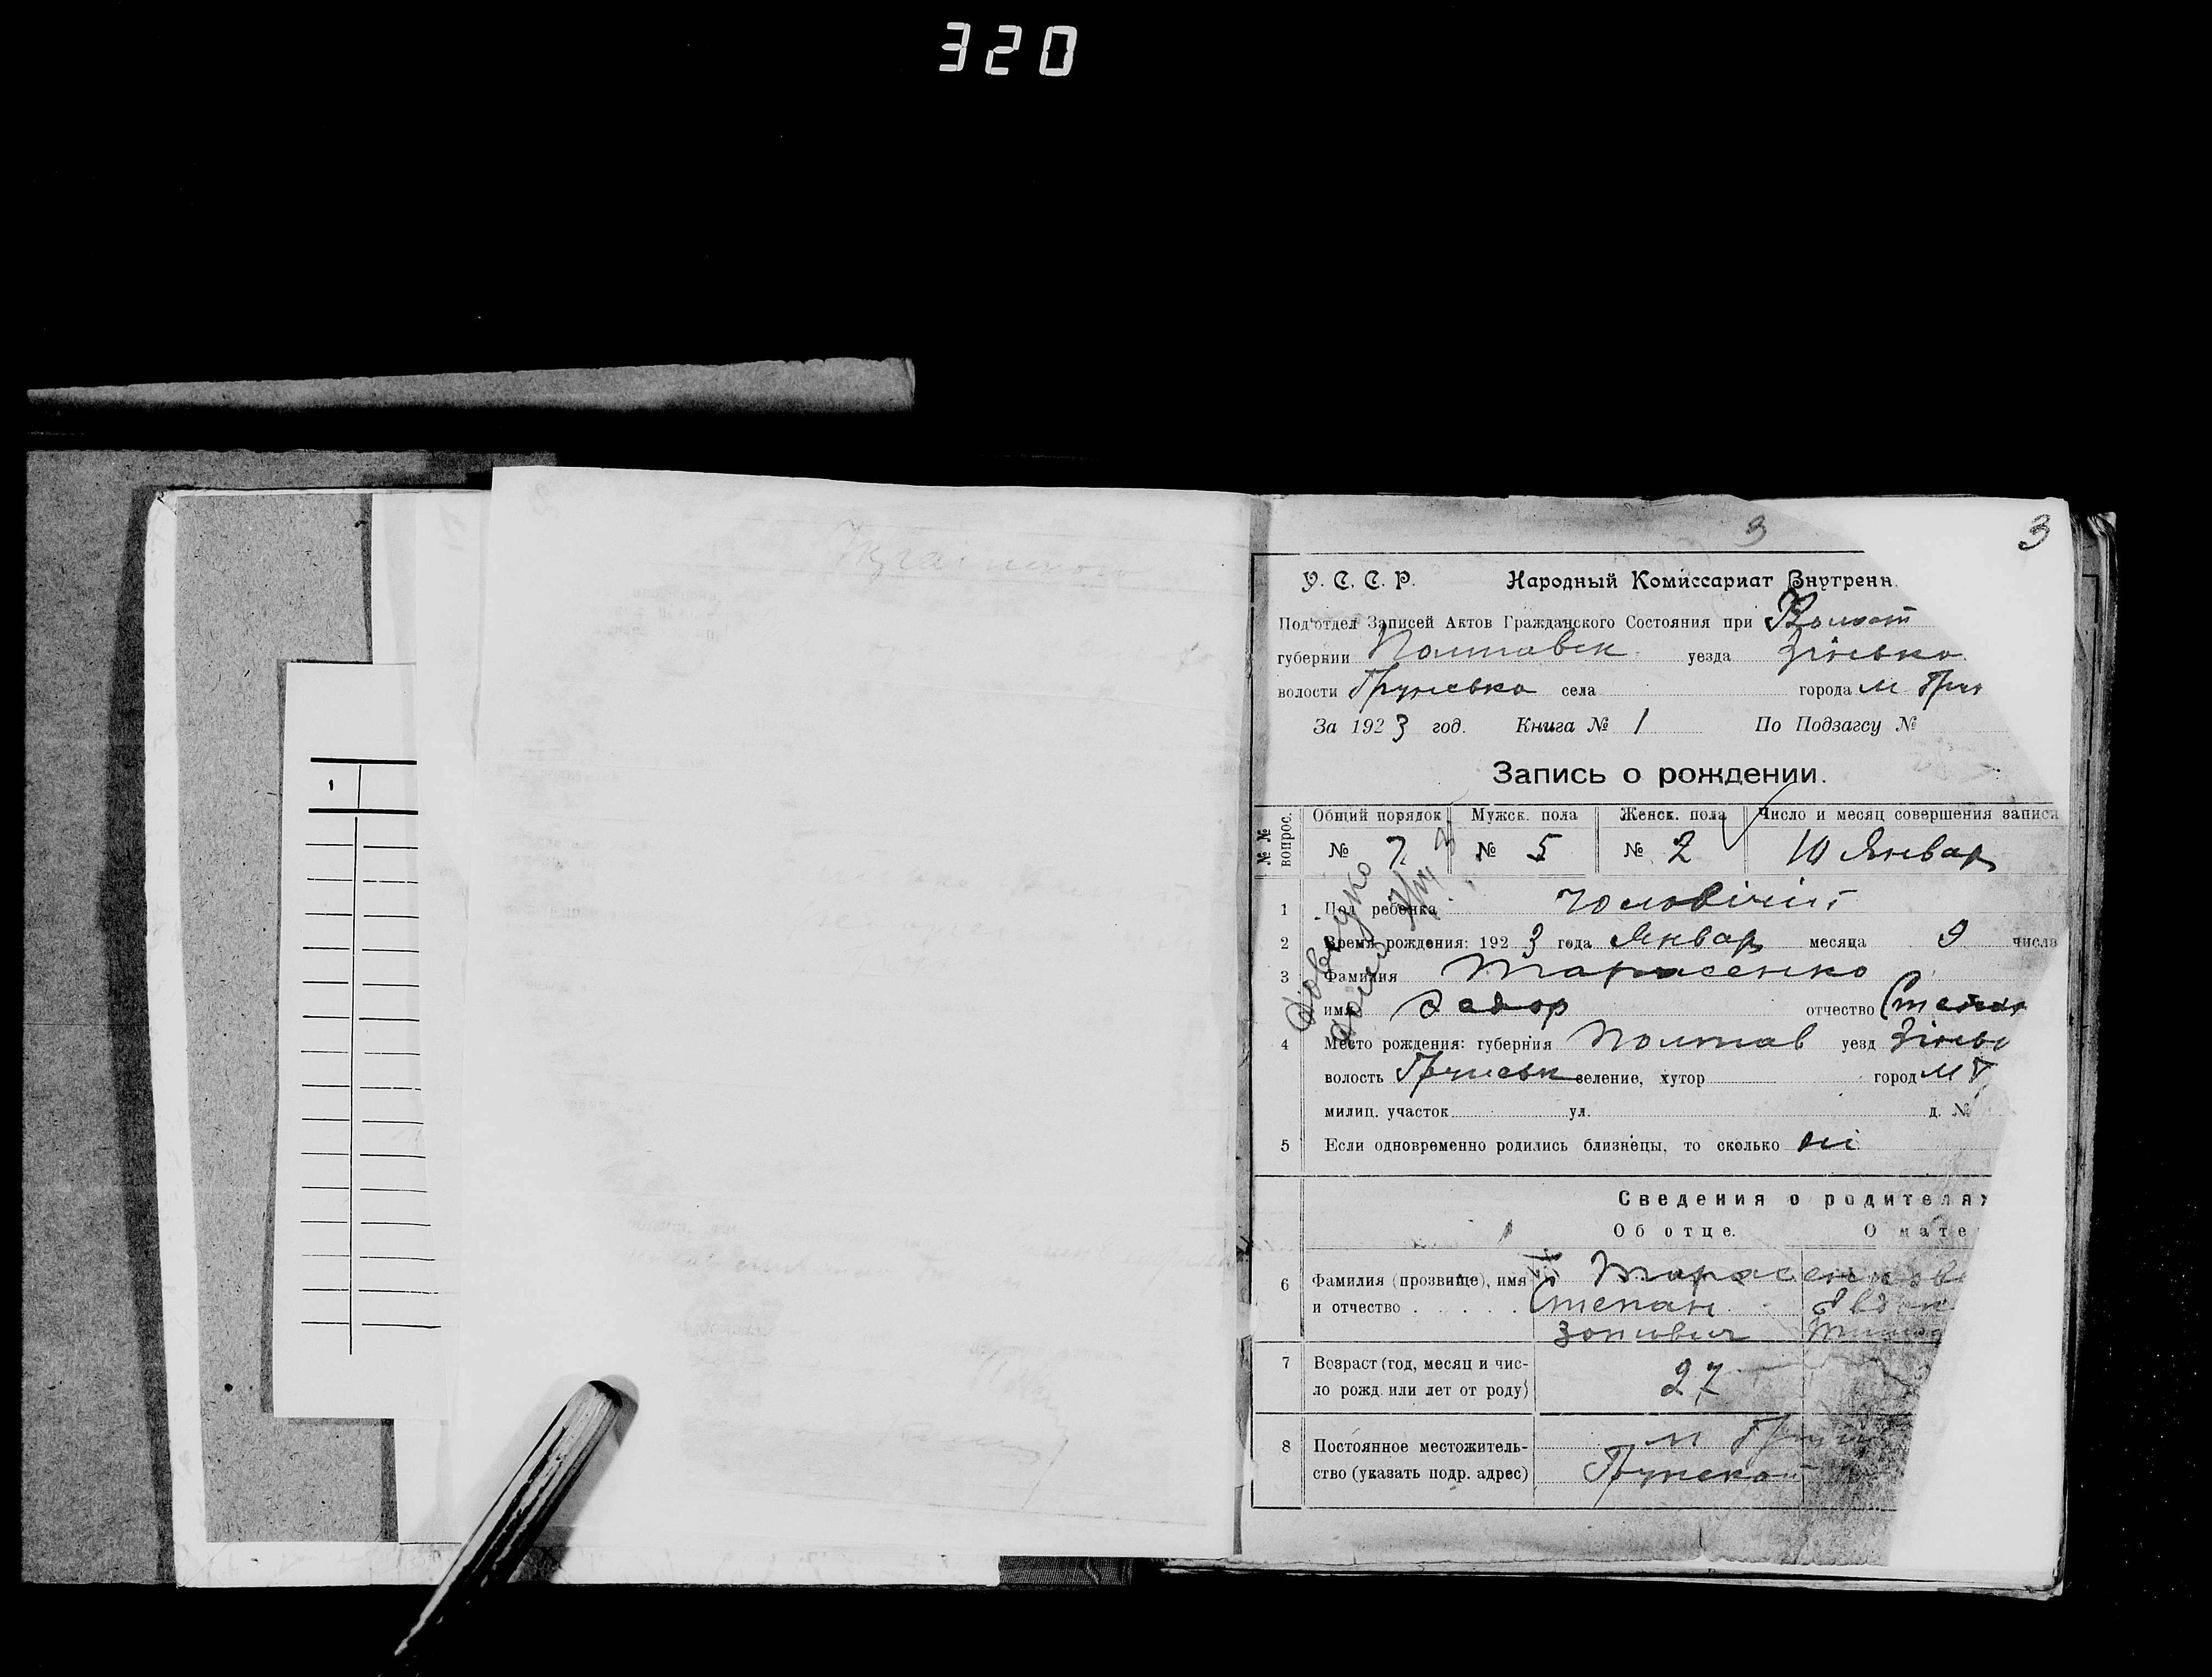 320
3
3
У. С. С. Р. Народный Комиссариат Внутренн.
Под'отдел Записей Актов Гражданского Состояния при
губернии Полтавск уезда Зінько
волости Груньско села города м Гру
За 1923 год. Книга № 1 По Подзагсу №
Запись о рождении.
№ № вопрос. Общий порядок Мужск. пола Женск. пола Число и месяц совершения записи
№ 7 № 5 № 2 10 Январ
1 Пол ребенка чоловічий
2 Время рождения: 1923 года Январ месяца 9 числа
3 Фамилия Тарасенко
имя Федор отчество Степан
4 Место рождения: губерния Полтав уезд Зіньо
волость Груньск селение, хутор город м Г
милиц. участок ул. д. №
5 Если одновременно родились близнецы, то сколько ні
Сведения о родителях
Об отце. О мате
6 Фамилия (прозвище), имя Тарасенкови
и отчество Степан Евдок
7 Возраст (год, месяц и чис-
ло рожд. или лет от роду) 27
8 Постоянное местожитель- м Грун
ство (указать подр. адрес) Грунской
1